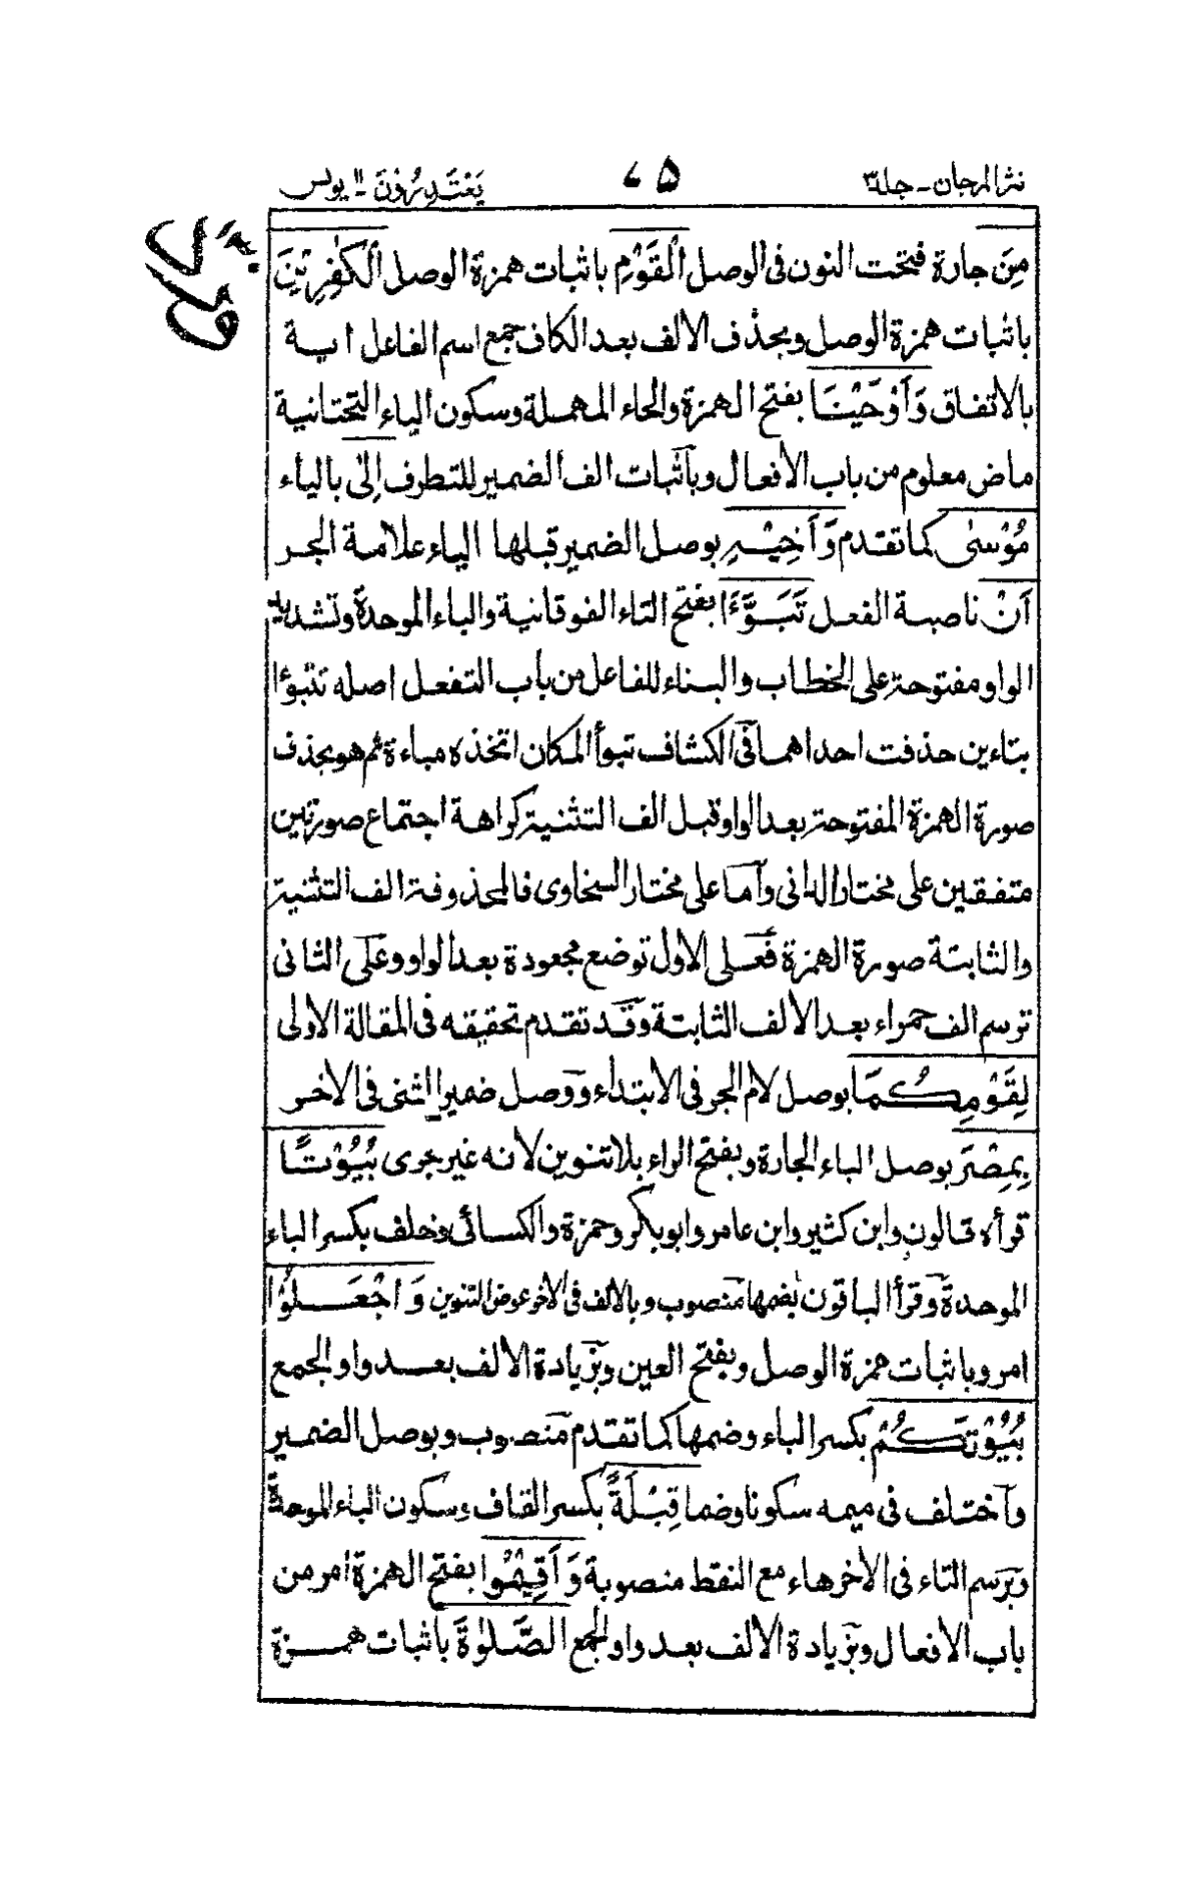 نثر المرجان - جلد ٣
يَعْتَذِرُوْنَ ۱۱ يونس
مِنَ جارة فتحت النون فى الوصل الْقَوْمِ باثبات همزة الوصل الْكٰفِرِيْنَ
باثبات همزة الوصل وبحذف الالف بعد الكاف جمع اسم الفاعل اية
بالاتفاق وَاَوْحَيْنَا بفتح الهمزة والحاء المهملة وسكون الياء التحتانية
ماض معلوم من باب الافعال وبأثبات الف الضمير للتطرف اِلٰى بالياء
مُوْسٰى كما تقدم وَاَخِيْهِ بوصل الضمير قبلها الياء علامة الجر
اَنْ ناصبة الفعل تَبَوَّءَا بفتح التاء الفوقانية والباء الموحدة وتشديد
الواو مفتوحة على الخطاب والبناء للفاعل من بأب التفعل اصله تتبوءا
بتاءين حذفت احداهما فى الكشاف تبوأ المكان اتخذه مباءة ثم هو بحذف
صورة الهمزة المفتوحة بعد الواو قبل الف التثنية كراهة اجتماع صورتين
متفقين على مختار الدانى وآما على مختار السخاوى فالمحذوفة الف التثنية
والثابتة صورة الهمزة فعلى الاول توضع مجعودة بعد الواو وعلى الثانى
ترسم الف حمراء بعد الالف الثابتة وقد تقدم تحقيقه فى المقالة الاولى
لِقَوْمِكُمَا بوصل لام الجر فى الابتداء ووصل ضمير المثنى فى الاخر
بِمِصْرَ بوصل الباء الجارة وبفتح الراء بلا تنوين لأنه غير مجرى بُيُوْتًا
قرأه قالون وابن كثير وابن عامر وابو بكر وحمزة والكسائى وخلف بكسر الباء
الموحدة وقرأ الباقون بضمها منصوب وبالالف فى الاخر عوض التنوين وَاجْعَلُوْا
امر وباثبات همزة الوصل وبفتح العين وبزيادة الالف بعد واو الجمع
بُيُوْتَكُمْ بكسر الباء وضمها كما تقدم منصوب وبوصل الضمير
وآختلف فى ميمه سكونا وضما قِبْلَةً بكسر القاف وسكون الباء الموحدة
وبرسم التاء فى الاخر هاء مع النقط منصوبة وَاَقِيْمُوا بفتح الهمزة امر من
باب الافعال وبزيادة الالف بعد واو الجمع الصَّلٰوةَ باثبات همزة